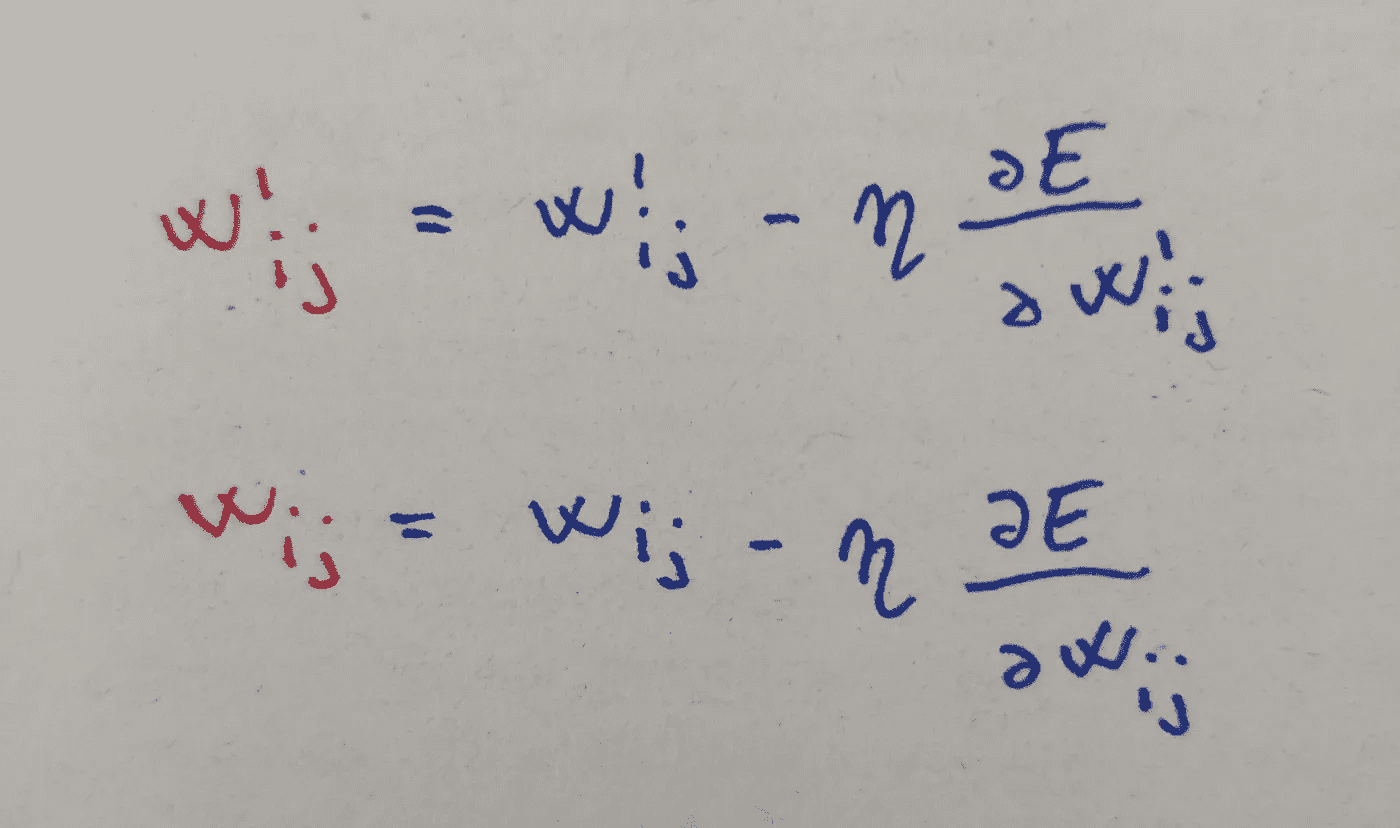 w'ij = w'ij - η ∂E/∂w'ij
wij = wij - η ∂E/∂wij